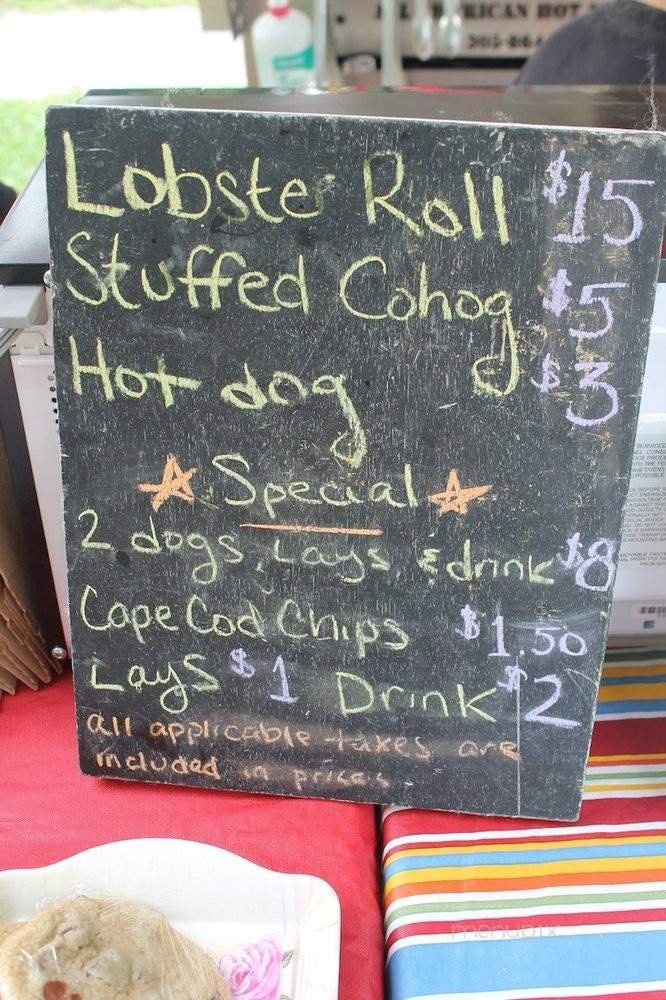 RICAN HOT
305-864
Lobster Roll $15
Stuffed Cohog $5
Hot dog $3
Special
2 dogs, Lays & drink $8
Cape Cod Chips $1.50
Lays $1 Drink $2
all applicable taxes are
included in prices
menupix